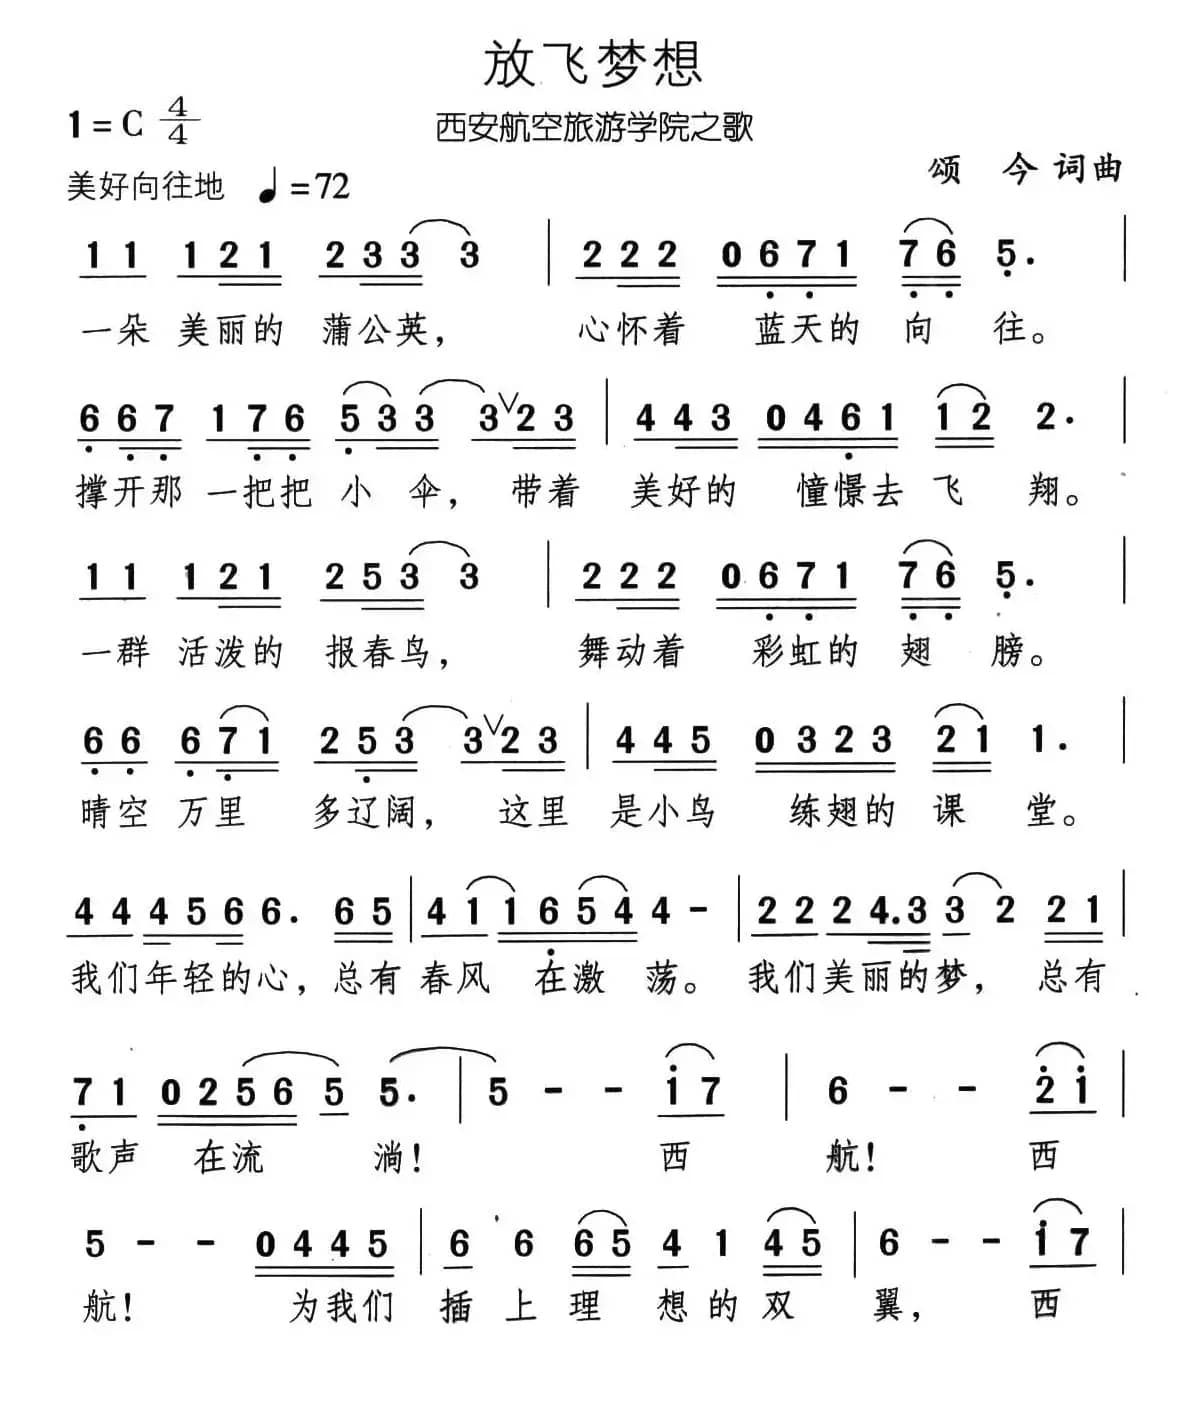 放飞梦想
1=C 4/4
西安航空旅游学院之歌
颂 今 词曲
美好向往地 ♩=72
1 1 1 2 1 2 3 3 3 | 2 2 2 0 6 7 1 7 6 5. |
一朵 美丽的 蒲公英， 心怀着 蓝天的 向 往。
6 6 7 1 7 6 5 3 3 3 ∨ 2 3 | 4 4 3 0 4 6 1 1 2 2. |
撑开那 一把把 小 伞， 带着 美好的 憧憬去 飞 翔。
1 1 1 2 1 2 5 3 3 | 2 2 2 0 6 7 1 7 6 5. |
一群 活泼的 报春鸟， 舞动着 彩虹的 翅 膀。
6 6 6 7 1 2 5 3 3 ∨ 2 3 | 4 4 5 0 3 2 3 2 1 1. |
晴空 万里 多辽阔， 这里 是小鸟 练翅的 课 堂。
4 4 4 5 6 6. 6 5 | 4 1 1 6 5 4 4 - | 2 2 2 4. 3 3 2 2 1 |
我们年轻的心，总有 春风 在激 荡。 我们美丽的梦， 总有
7 1 0 2 5 6 5 5. | 5 - - i 7 | 6 - - 2 i |
歌声 在流 淌！ 西 航！ 西
5 - - 0 4 4 5 | 6 6 6 5 4 1 4 5 | 6 - - i 7 |
航！ 为我们 插 上 理 想 的 双 翼， 西